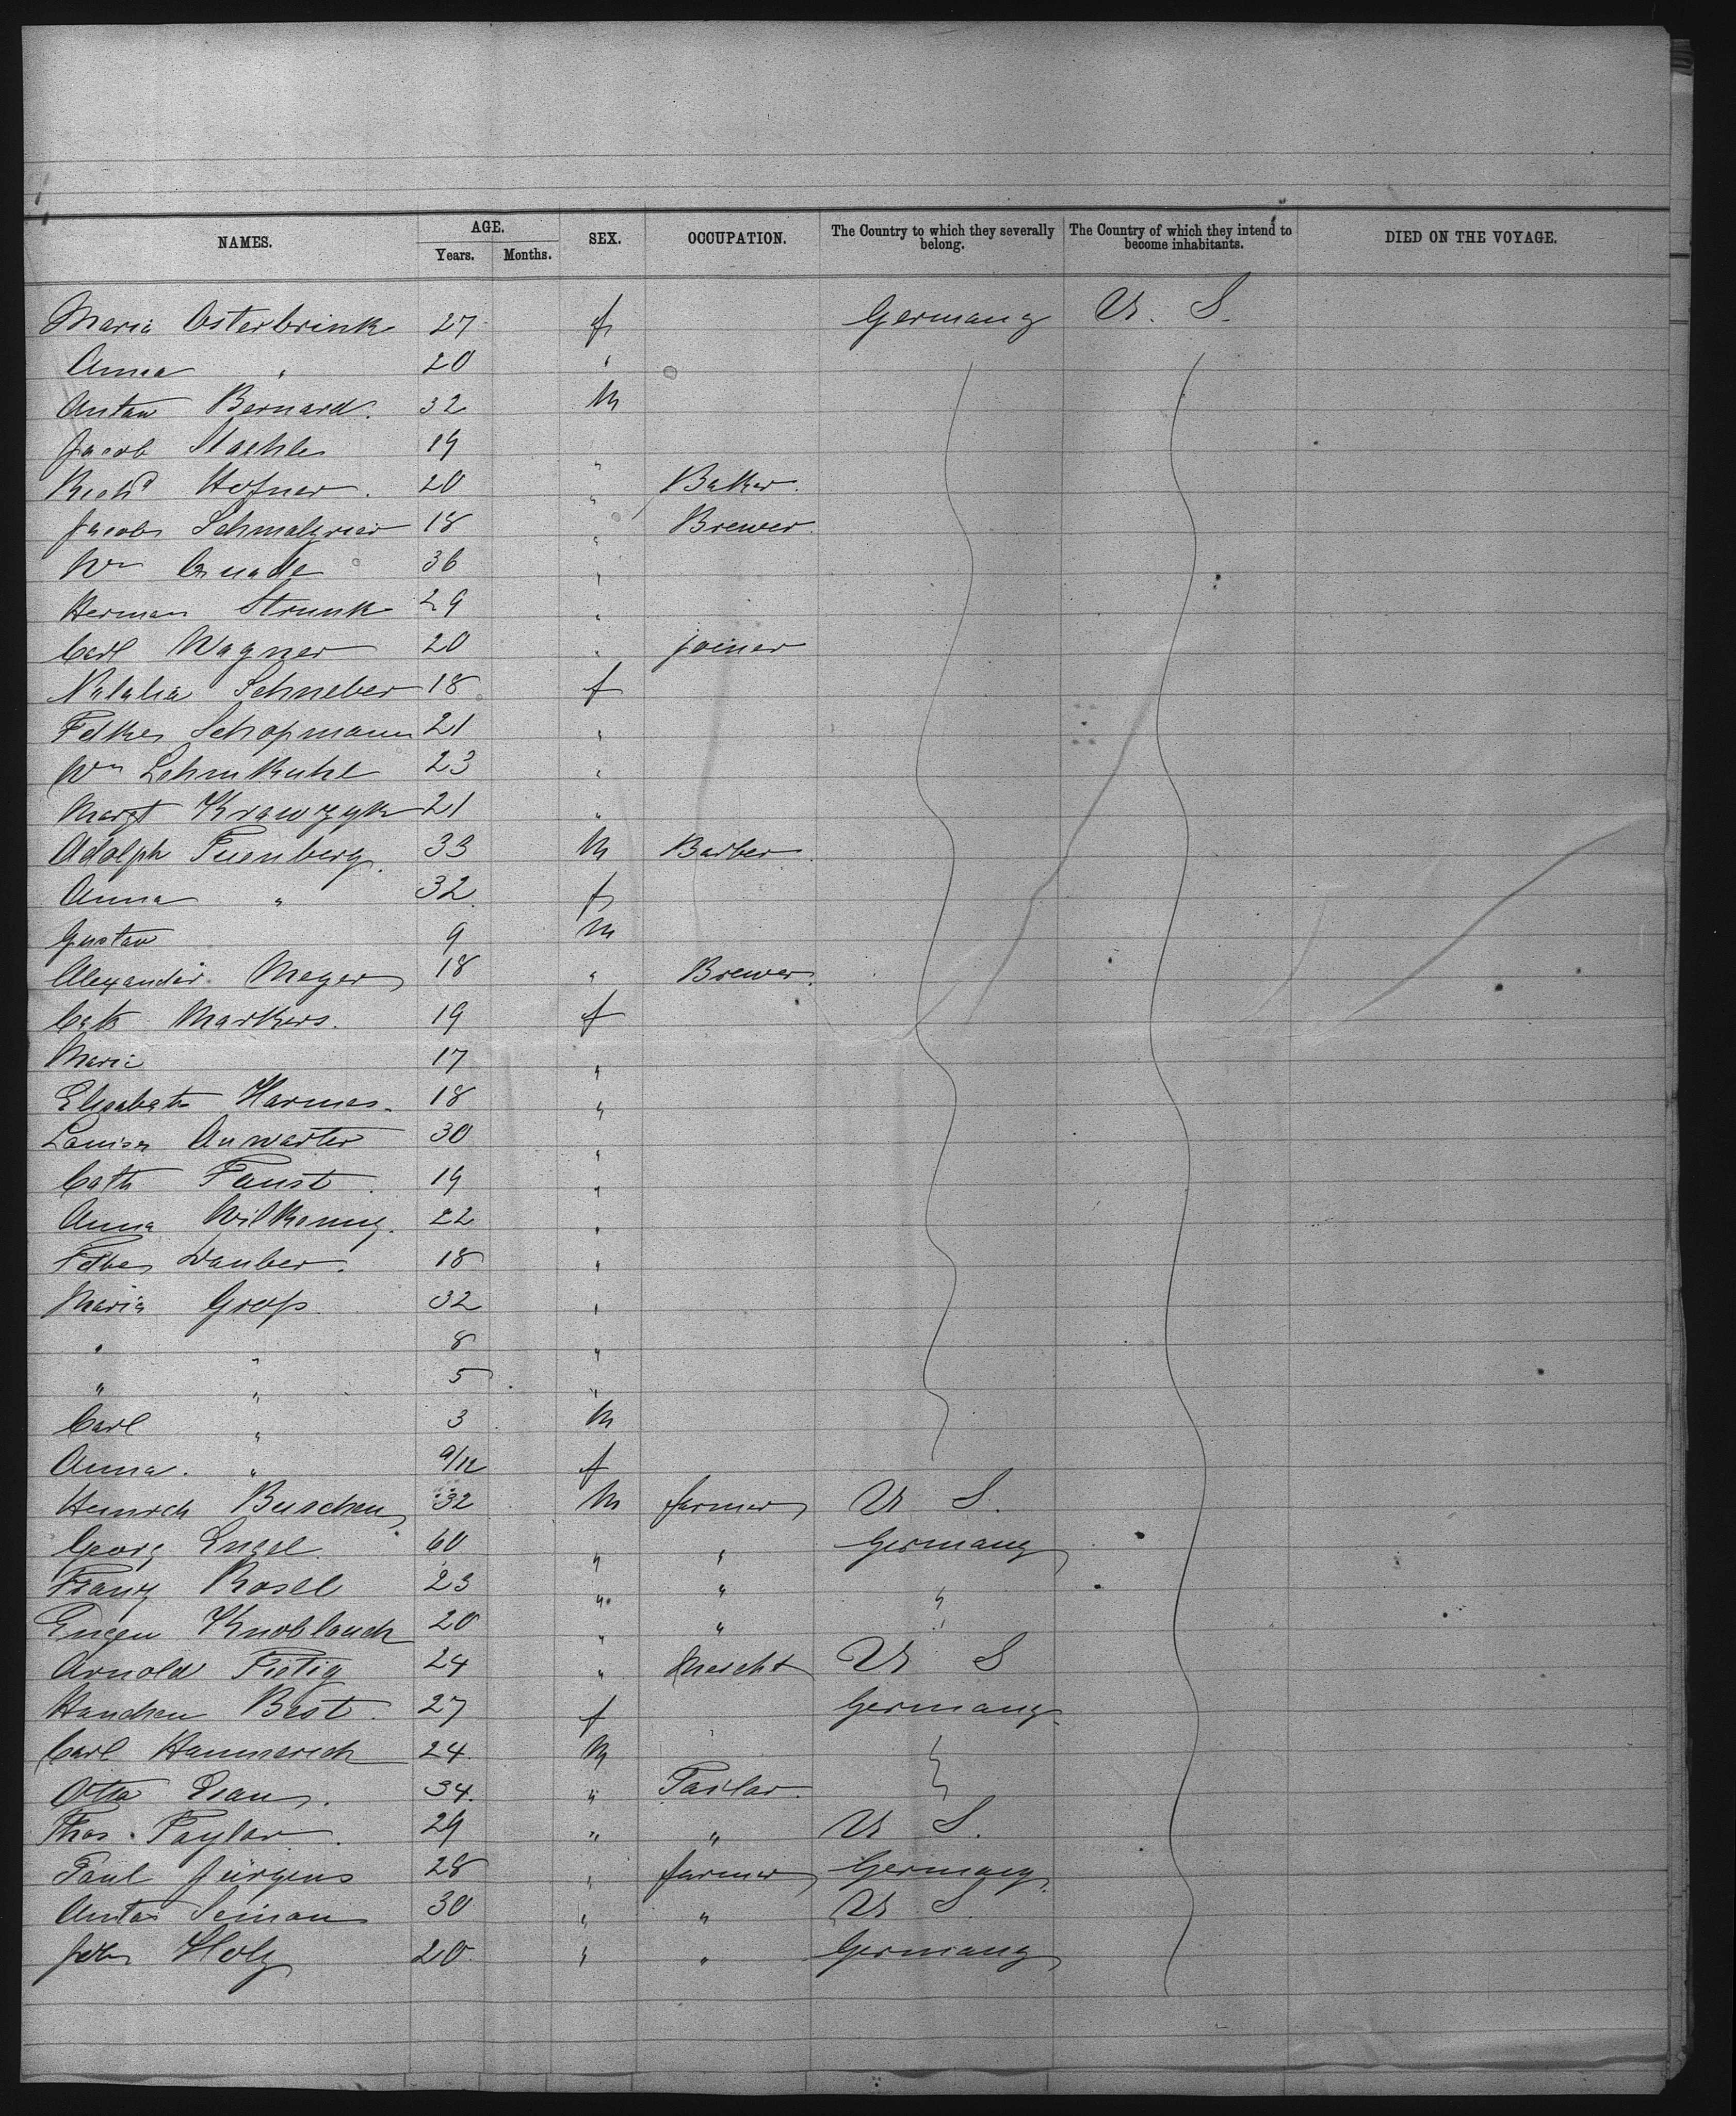 NAMES. AGE. SEX. OCCUPATION. The Country to which they severally belong. The Country of which they intend to become inhabitants. DIED ON THE VOYAGE.
Years. Months.
Maria Osterbrink 27 f Germany U. S.
Anna " 20 "
Anton Bernard. 32 M
Jacob Staehle 19 "
Richd Hofner. 20 " Baker.
Jacob 18 " Brewer.
Wm 36 "
Herman Strunk 29 "
Carl Wagner 20 " joiner
Natalia Schneber 18 f
Schopmann 21 "
Wm Lehmkuhl 23 "
Margt Krawzyk 21 "
Adolph 33 M Barber
Anna " 32. f
Gustav 9 M
Alexander Meyer 18 " Brewer.
Cath Markers. 19 f
Maria 17 "
Elisabeth Harmes. 18 "
Louisa Anwarter 30 "
Cath Faust. 19 "
Anna Wilkening. 22 "
Dauber. 18 "
Maria Gross 32 "
" " 8 "
" " 5 "
Carl " 3 M
Anna. " 9/12 f
Heinrich Buschen 32 M farmer U S.
Georg Engel 60 " " Germany
Franz Rosel 23 " " "
Eugen Knoblauch 20 " " "
Arnold Fietig 24 " Mercht U S
Hanchen Best. 27 f Germany
Carl Hammerich 24. M
Otto 34. " Tailor.
Thos. Taylor. 29 " " U S.
Paul Jürgens 28 " farmer Germany
Anton 30 " " U S.
Holz 20. " " Germany